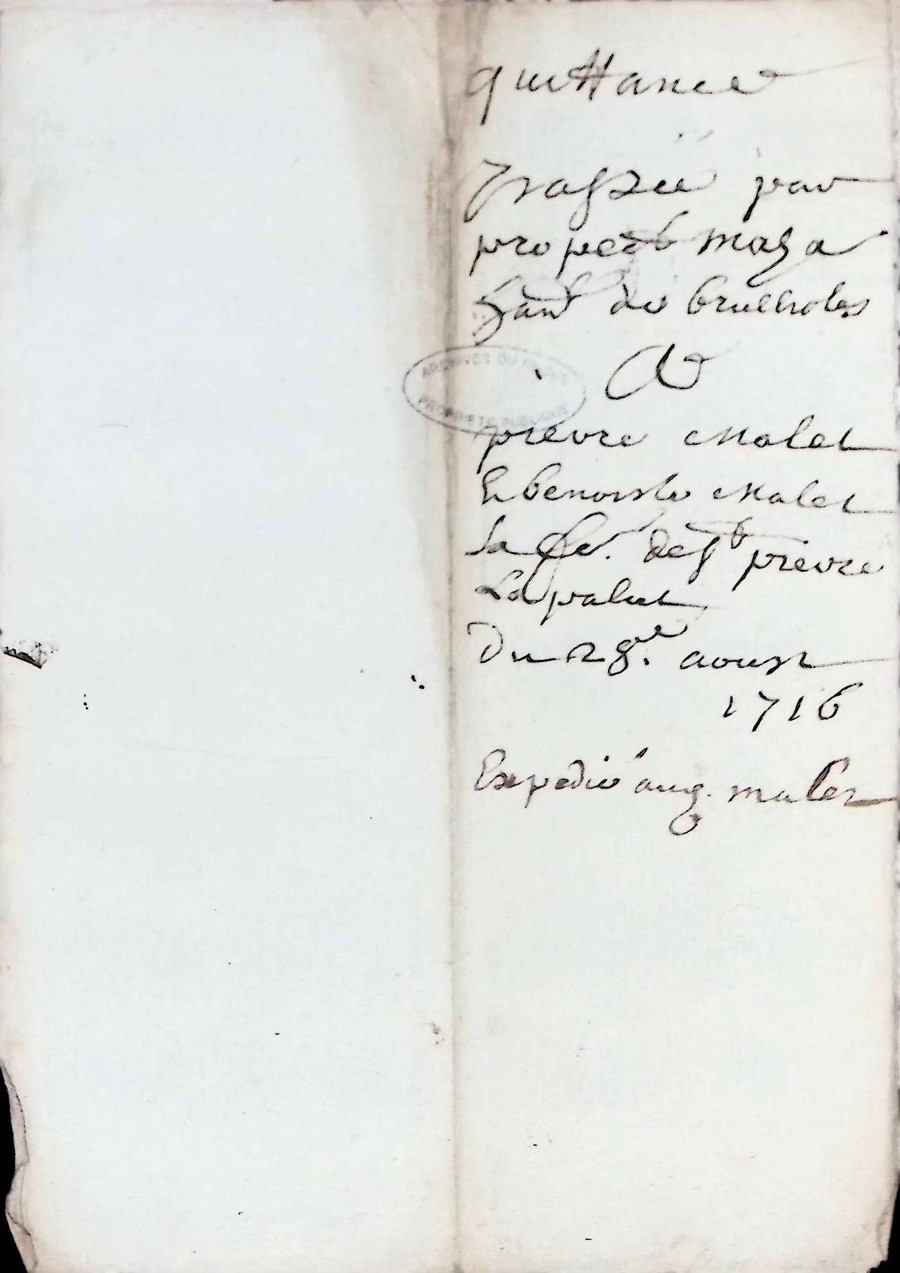 quittance
passée par
prope
de brullioles
A
pierre Malet
Et benoiste Malet
Sa fe. de pierre
Lapalut
Du 28e. aoust
1716
Expedié aud. malet
ARCHIVES DU RHÔNE
PROPRIÉTÉ PUBLIQUE